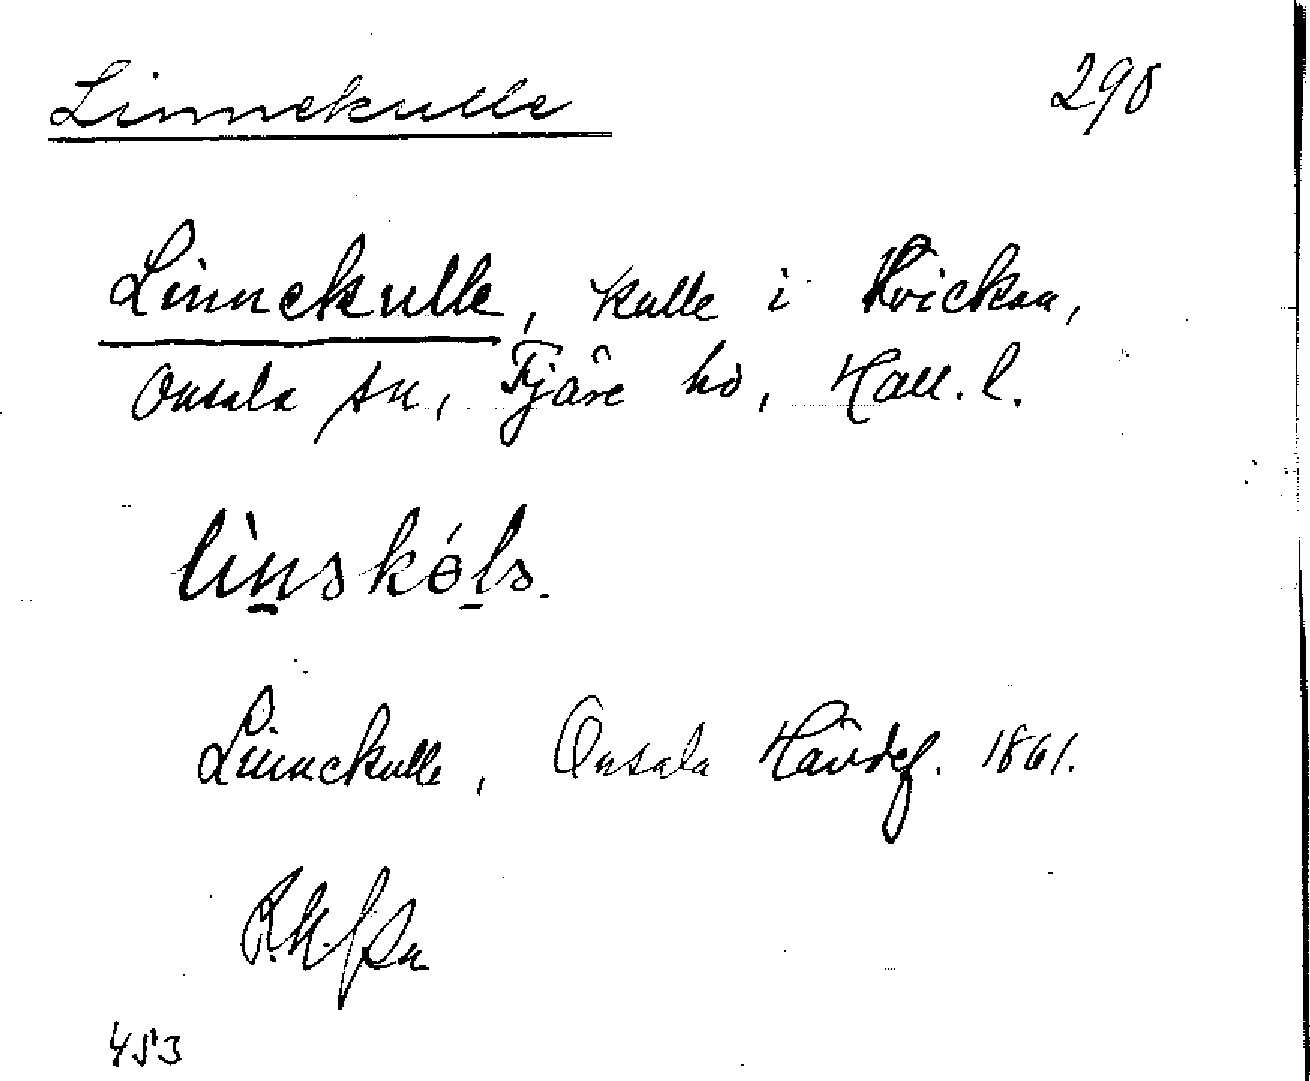 Linnekulle 298
Linnekulle, kulle i Hvickan,
Onsala sn, Fjäre hd, Hall. l.
lìnskóls.
Linnekulle, Onsala Hävdef. 1861.
453